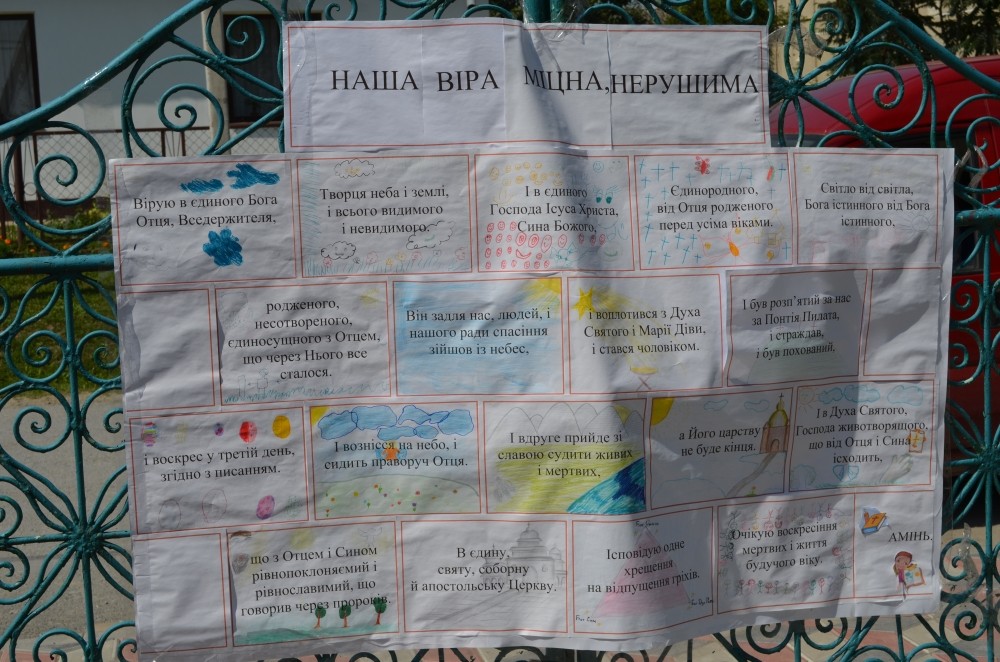 НАША ВІРА МІЦНА, НЕРУШИМА
Вірую в єдиного Бога
Отця, Вседержителя,
Творця неба і землі,
і всього видимого
і невидимого.
І в єдиного
Господа Ісуса Христа,
Сина Божого,
Єдинородного,
від Отця родженого
перед усіма віками.
Світло від світла,
Бога істинного від Бога
істинного,
родженого,
несотвореного,
єдиносущного з Отцем,
що через Нього все
сталося.
Він задля нас, людей, і
нашого ради спасіння
зійшов із небес,
і воплотився з Духа
Святого і Марії Діви,
і стався чоловіком.
І був розп’ятий за нас
за Понтія Пилата,
і страждав,
і був похований,
і воскрес у третій день,
згідно з писанням.
І вознісся на небо, і
сидить праворуч Отця.
І вдруге прийде зі
славою судити живих
і мертвих,
а Його царству
не буде кінця.
І в Духа Святого,
Господа животворящого,
що від Отця і Сина
ісходить,
що з Отцем і Сином
рівнопоклоняємий і
рівнославимий, що
говорив через пророків.
В єдину,
святу, соборну
й апостольську Церкву.
Ісповідую одне
хрещення
на відпущення гріхів.
Очікую воскресіння
мертвих і життя
будучого віку.
АМІНЬ.